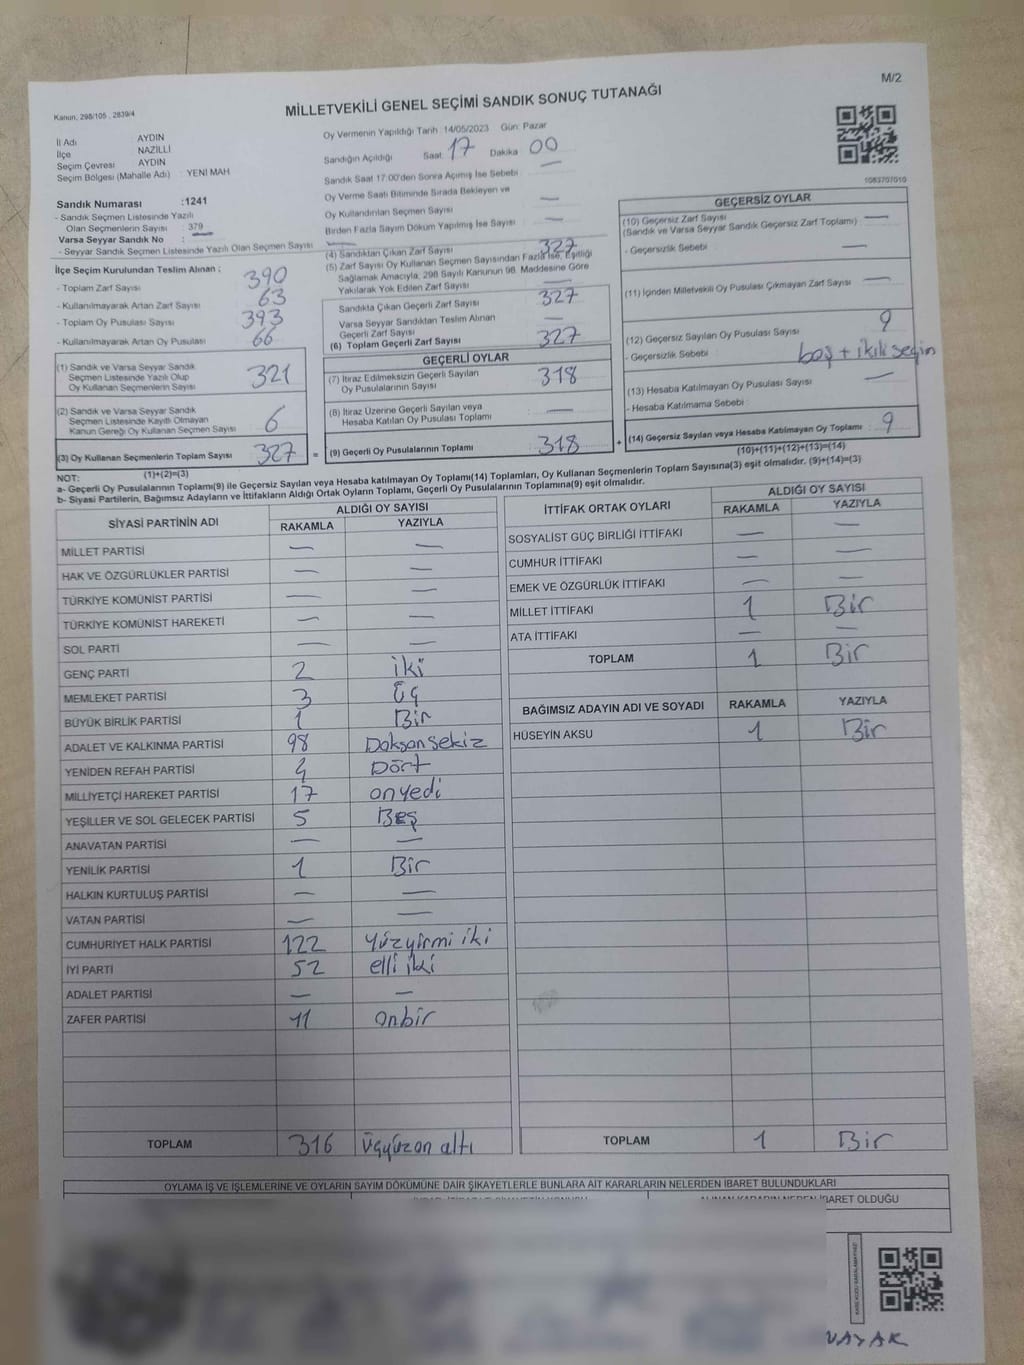 M/2
Kanun, 298/105 , 2839/4
MİLLETVEKİLİ GENEL SEÇİMİ SANDIK SONUÇ TUTANAĞI
İl Adı AYDIN
İlçe NAZİLLİ
Seçim Çevresi AYDIN
Seçim Bölgesi (Mahalle Adı) : YENİ MAH
Sandık Numarası :1241
- Sandık Seçmen Listesinde Yazılı
Olan Seçmenlerin Sayısı : 379
Varsa Seyyar Sandık No : —
- Seyyar Sandık Seçmen Listesinde Yazılı Olan Seçmen Sayısı —
Oy Vermenin Yapıldığı Tarih :14/05/2023 Gün: Pazar
Sandığın Açıldığı Saat: 17 Dakika 00
Sandık Saat 17:00'den Sonra Açımış İse Sebebi —
Oy Verme Saati Bitiminde Sırada Bekleyen ve
Oy Kullandırılan Seçmen Sayısı —
Birden Fazla Sayım Döküm Yapılmış İse Sayısı : —
1083707010
İlçe Seçim Kurulundan Teslim Alınan ;
- Toplam Zarf Sayısı 390
- Kullanılmayarak Artan Zarf Sayısı 63
- Toplam Oy Pusulası Sayısı 393
- Kullanılmayarak Artan Oy Pusulası 66
(1) Sandık ve Varsa Seyyar Sandık
Seçmen Listesinde Yazılı Olup
Oy Kullanan Seçmenlerin Sayısı 321
(2) Sandık ve Varsa Seyyar Sandık
Seçmen Listesinde Kayıtlı Olmayan
Kanun Gereği Oy Kullanan Seçmen Sayısı 6
(3) Oy Kullanan Seçmenlerin Toplam Sayısı 327 =
(1)+(2)=(3)
(4) Sandıktan Çıkan Zarf Sayısı 327
(5) Zarf Sayısı Oy Kullanan Seçmen Sayısından Fazla İse, Eşitliği
Sağlamak Amacıyla, 298 Sayılı Kanunun 98. Maddesine Göre
Yakılarak Yok Edilen Zarf Sayısı —
Sandıkta Çıkan Geçerli Zarf Sayısı 327
Varsa Seyyar Sandıktan Teslim Alınan
Geçerli Zarf Sayısı —
(6) Toplam Geçerli Zarf Sayısı 327
GEÇERLİ OYLAR
(7) İtiraz Edilmeksizin Geçerli Sayılan
Oy Pusulalarının Sayısı 318
(8) İtiraz Üzerine Geçerli Sayılan veya
Hesaba Katılan Oy Pusulası Toplamı —
(9) Geçerli Oy Pusulalarının Toplamı 318 +
GEÇERSİZ OYLAR
(10) Geçersiz Zarf Sayısı —
(Sandık ve Varsa Seyyar Sandık Geçersiz Zarf Toplamı)
- Geçersizlik Sebebi —
(11) İçinden Milletvekili Oy Pusulası Çıkmayan Zarf Sayısı —
(12) Geçersiz Sayılan Oy Pusulası Sayısı 9
- Geçersizlik Sebebi boş + ikili seçim
(13) Hesaba Katılmayan Oy Pusulası Sayısı —
- Hesaba Katılmama Sebebi :
(14) Geçersiz Sayılan veya Hesaba Katılmayan Oy Toplamı : 9
(10)+(11)+(12)+(13)=(14)
NOT:
a- Geçerli Oy Pusulalarının Toplamı(9) ile Geçersiz Sayılan veya Hesaba katılmayan Oy Toplamı(14) Toplamları, Oy Kullanan Seçmenlerin Toplam Sayısına(3) eşit olmalıdır. (9)+(14)=(3)
b- Siyasi Partilerin, Bağımsız Adayların ve İttifakların Aldığı Ortak Oyların Toplamı, Geçerli Oy Pusulalarının Toplamına(9) eşit olmalıdır.
SİYASİ PARTİNİN ADI ALDIĞI OY SAYISI
RAKAMLA YAZIYLA
MİLLET PARTİSİ — —
HAK VE ÖZGÜRLÜKLER PARTİSİ — —
TÜRKİYE KOMÜNİST PARTİSİ — —
TÜRKİYE KOMÜNİST HAREKETİ — —
SOL PARTİ — —
GENÇ PARTİ 2 iki
MEMLEKET PARTİSİ 3 Üç
BÜYÜK BİRLİK PARTİSİ 1 Bir
ADALET VE KALKINMA PARTİSİ 98 Doksansekiz
YENİDEN REFAH PARTİSİ 4 Dört
MİLLİYETÇİ HAREKET PARTİSİ 17 onyedi
YEŞİLLER VE SOL GELECEK PARTİSİ 5 Beş
ANAVATAN PARTİSİ — —
YENİLİK PARTİSİ 1 Bir
HALKIN KURTULUŞ PARTİSİ — —
VATAN PARTİSİ — —
CUMHURİYET HALK PARTİSİ 122 Yüzyirmi iki
İYİ PARTİ 52 elli iki
ADALET PARTİSİ — —
ZAFER PARTİSİ 11 onbir
TOPLAM 316 üçyüzon altı
İTTİFAK ORTAK OYLARI ALDIĞI OY SAYISI
RAKAMLA YAZIYLA
SOSYALİST GÜÇ BİRLİĞİ İTTİFAKI — —
CUMHUR İTTİFAKI — —
EMEK VE ÖZGÜRLÜK İTTİFAKI — —
MİLLET İTTİFAKI 1 Bir
ATA İTTİFAKI — —
TOPLAM 1 Bir
BAĞIMSIZ ADAYIN ADI VE SOYADI RAKAMLA YAZIYLA
HÜSEYİN AKSU 1 Bir
TOPLAM 1 Bir
OYLAMA İŞ VE İŞLEMLERİNE VE OYLARIN SAYIM DÖKÜMÜNE DAİR ŞİKAYETLERLE BUNLARA AİT KARARLARIN NELERDEN İBARET BULUNDUKLARI
ALINAN KARARIN NEDEN İBARET OLDUĞU